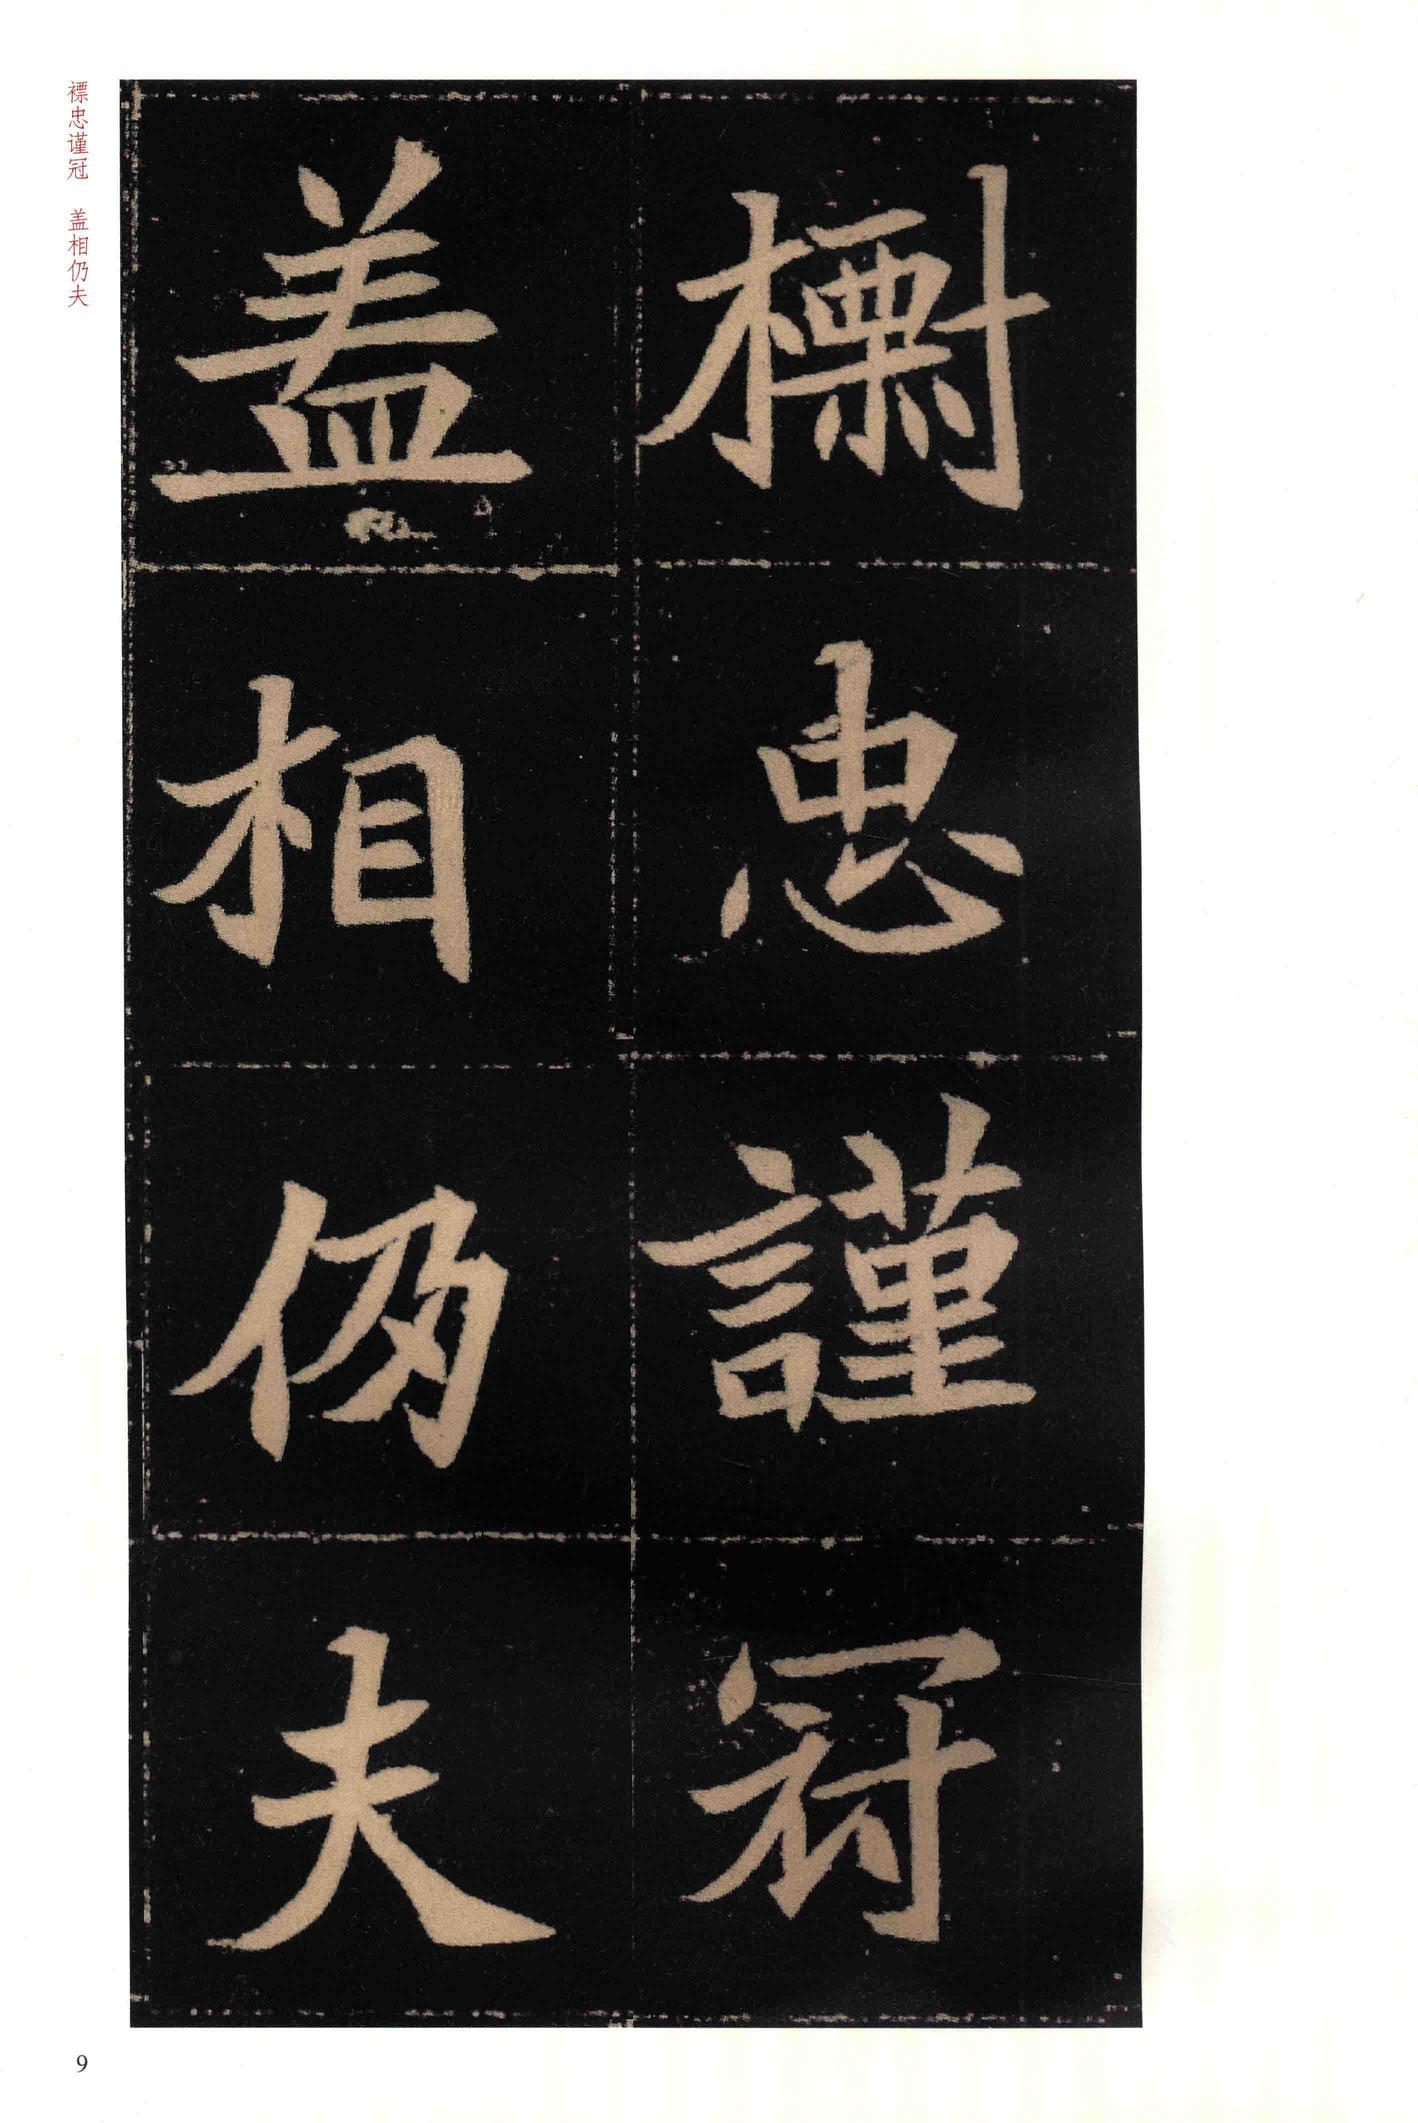 檦忠謹冠
盖相仍夫
褾忠谨冠　盖相仍夫
9